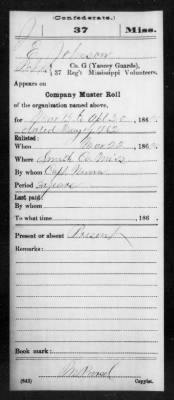 (Confederate.)
J 37 Miss.
E Johnson
Co. G (Yancey Guards),
37 Reg't Mississippi Volunteers.
Appears on
Company Muster Roll
of the organization named above,
for Mar 15 to Apl 30, 186
dated May 1, 1862
Enlisted:
When Mar 22, 186
Where Smith Co Miss
By whom Capt
Period 2 years
Last paid:
By whom
To what time , 186
Present or absent Present
Remarks:
Book mark:
(642) Copyist.